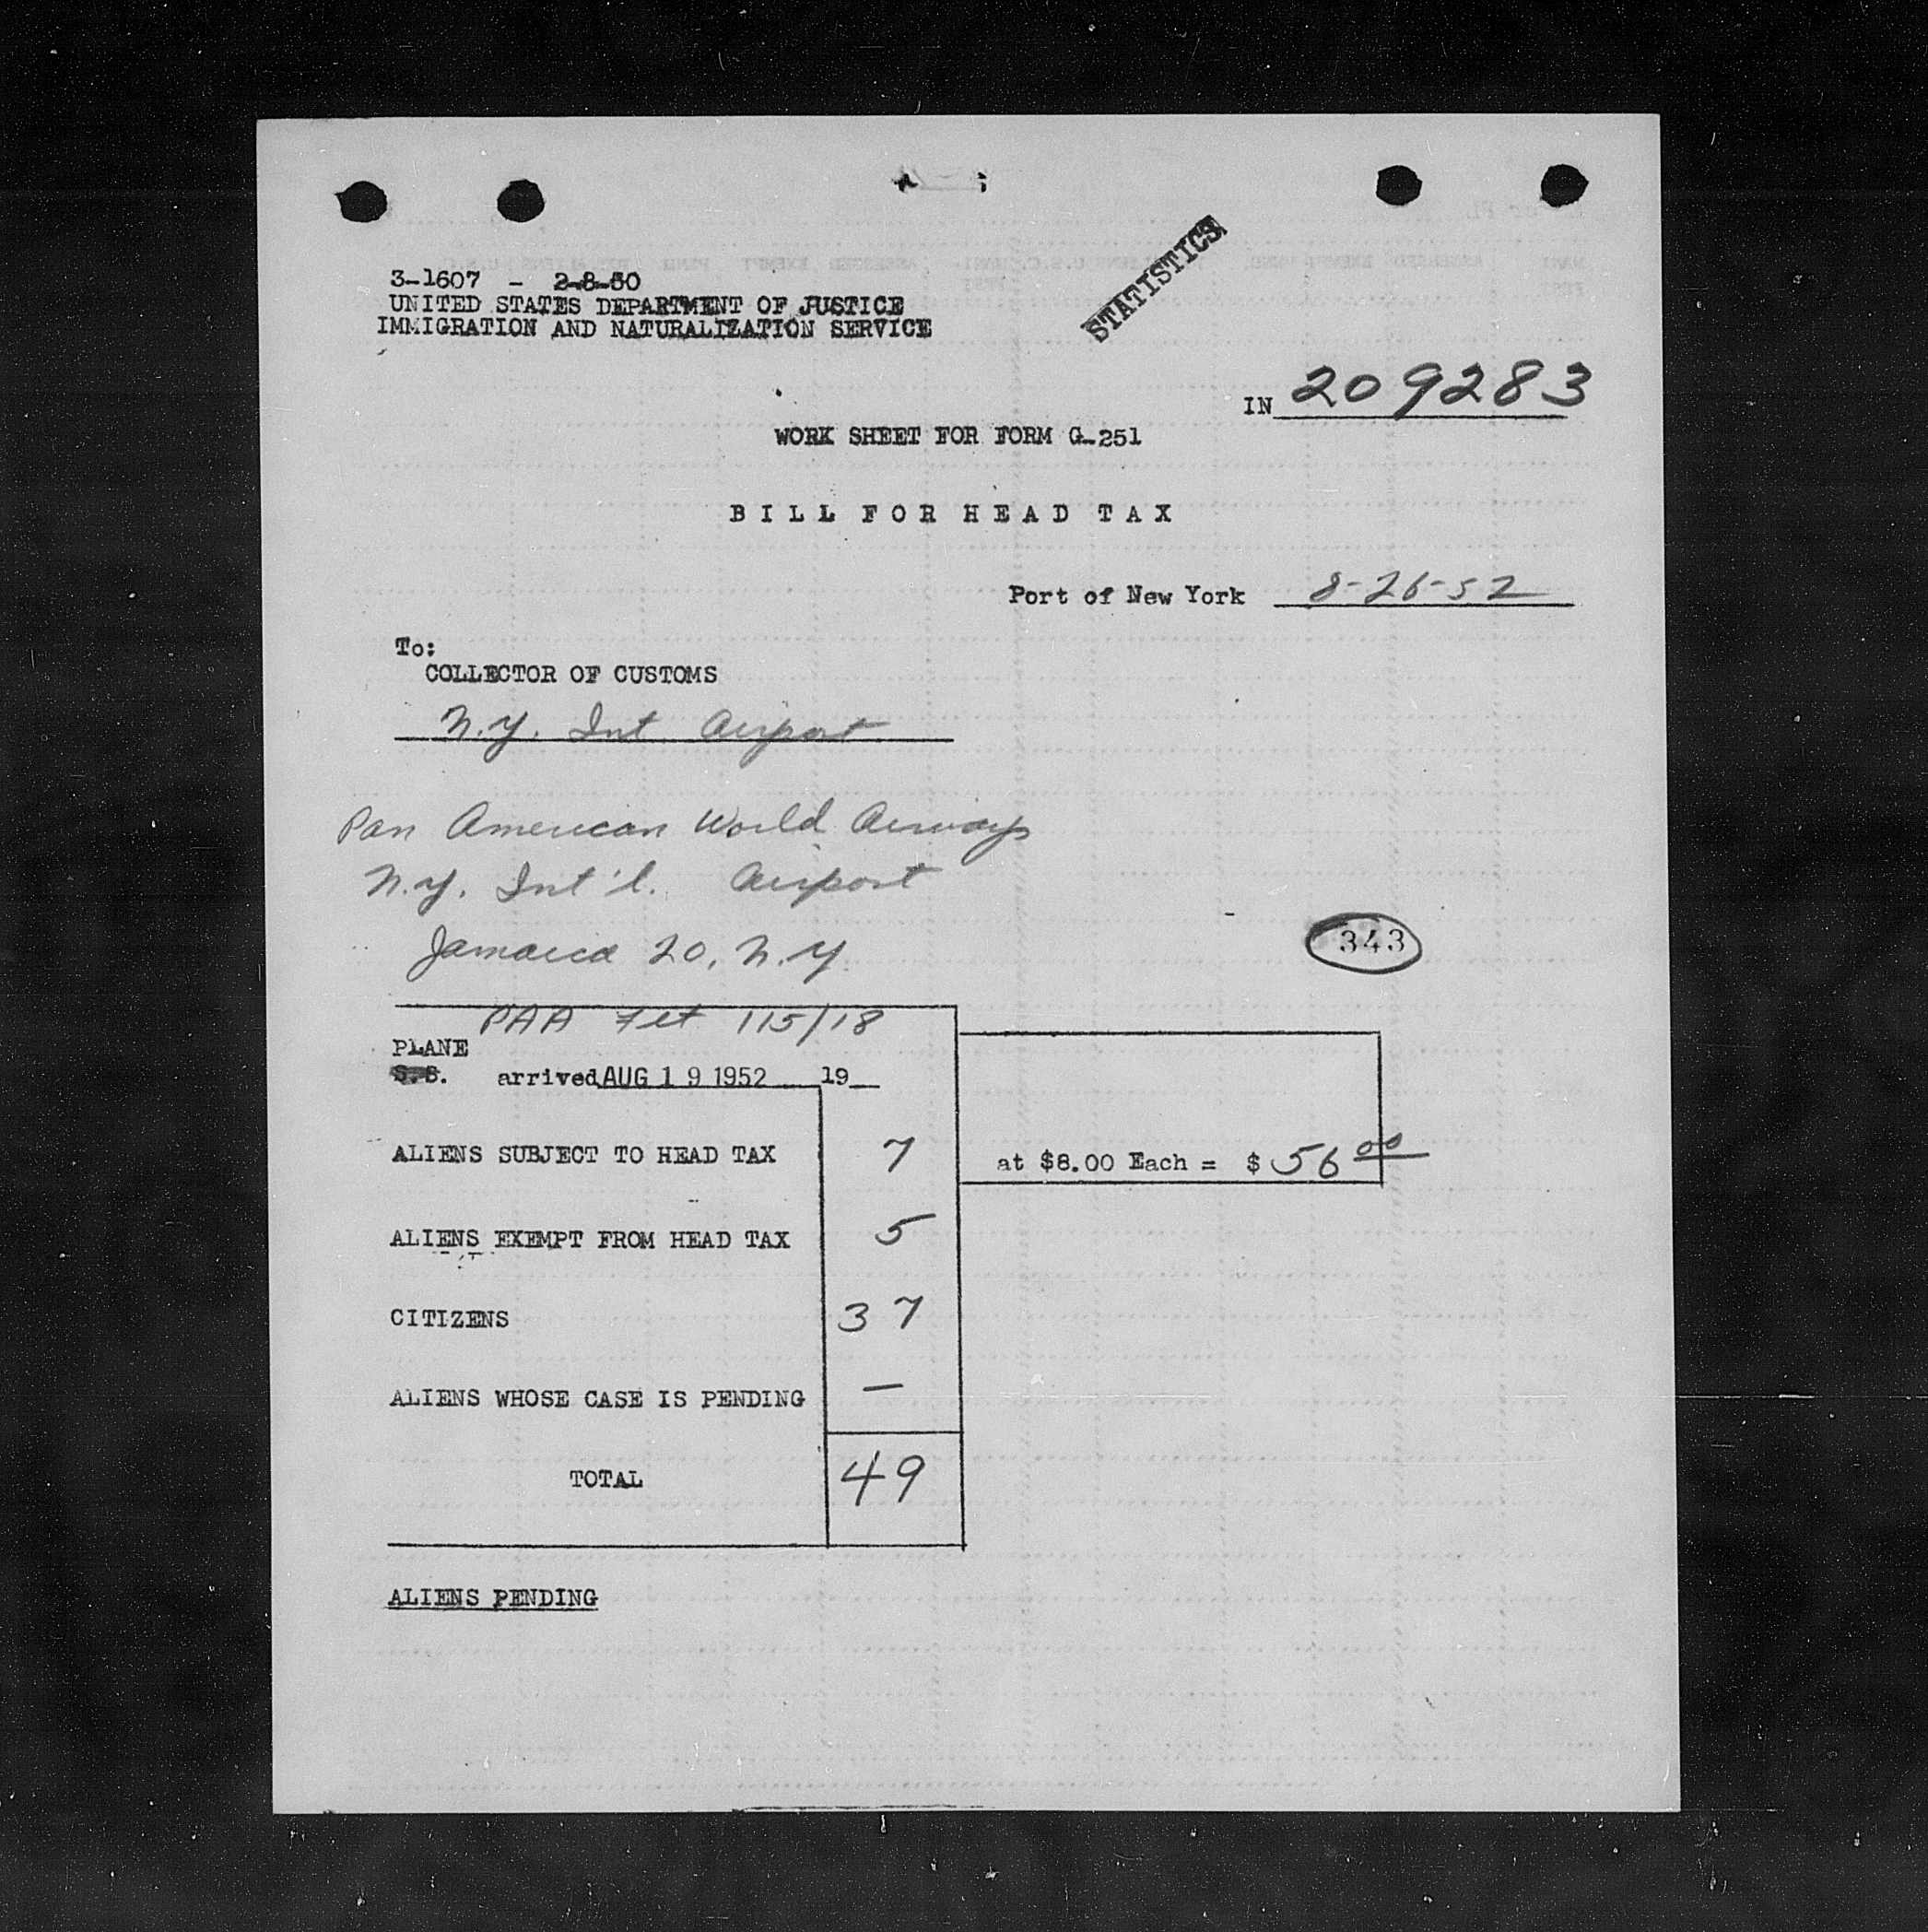 3-1607 - 2-8-50
UNITED STATES DEPARTMENT OF JUSTICE
IMMIGRATION AND NATURALIZATION SERVICE
STATISTICS
IN 209283
WORK SHEET FOR FORM G-251
BILL FOR HEAD TAX
Port of New York 8-26-52
To:
COLLECTOR OF CUSTOMS
N.Y. Int Airport
Pan American World Airways
N.Y. Int'l. Airport
Jamaica 20, N.Y.
343
PAA Flt 115/18
PLANE
S.S. arrived AUG 19 1952 19
ALIENS SUBJECT TO HEAD TAX 7 at $8.00 Each = $ 56 00
ALIENS EXEMPT FROM HEAD TAX 5
CITIZENS 37
ALIENS WHOSE CASE IS PENDING —
TOTAL 49
ALIENS PENDING